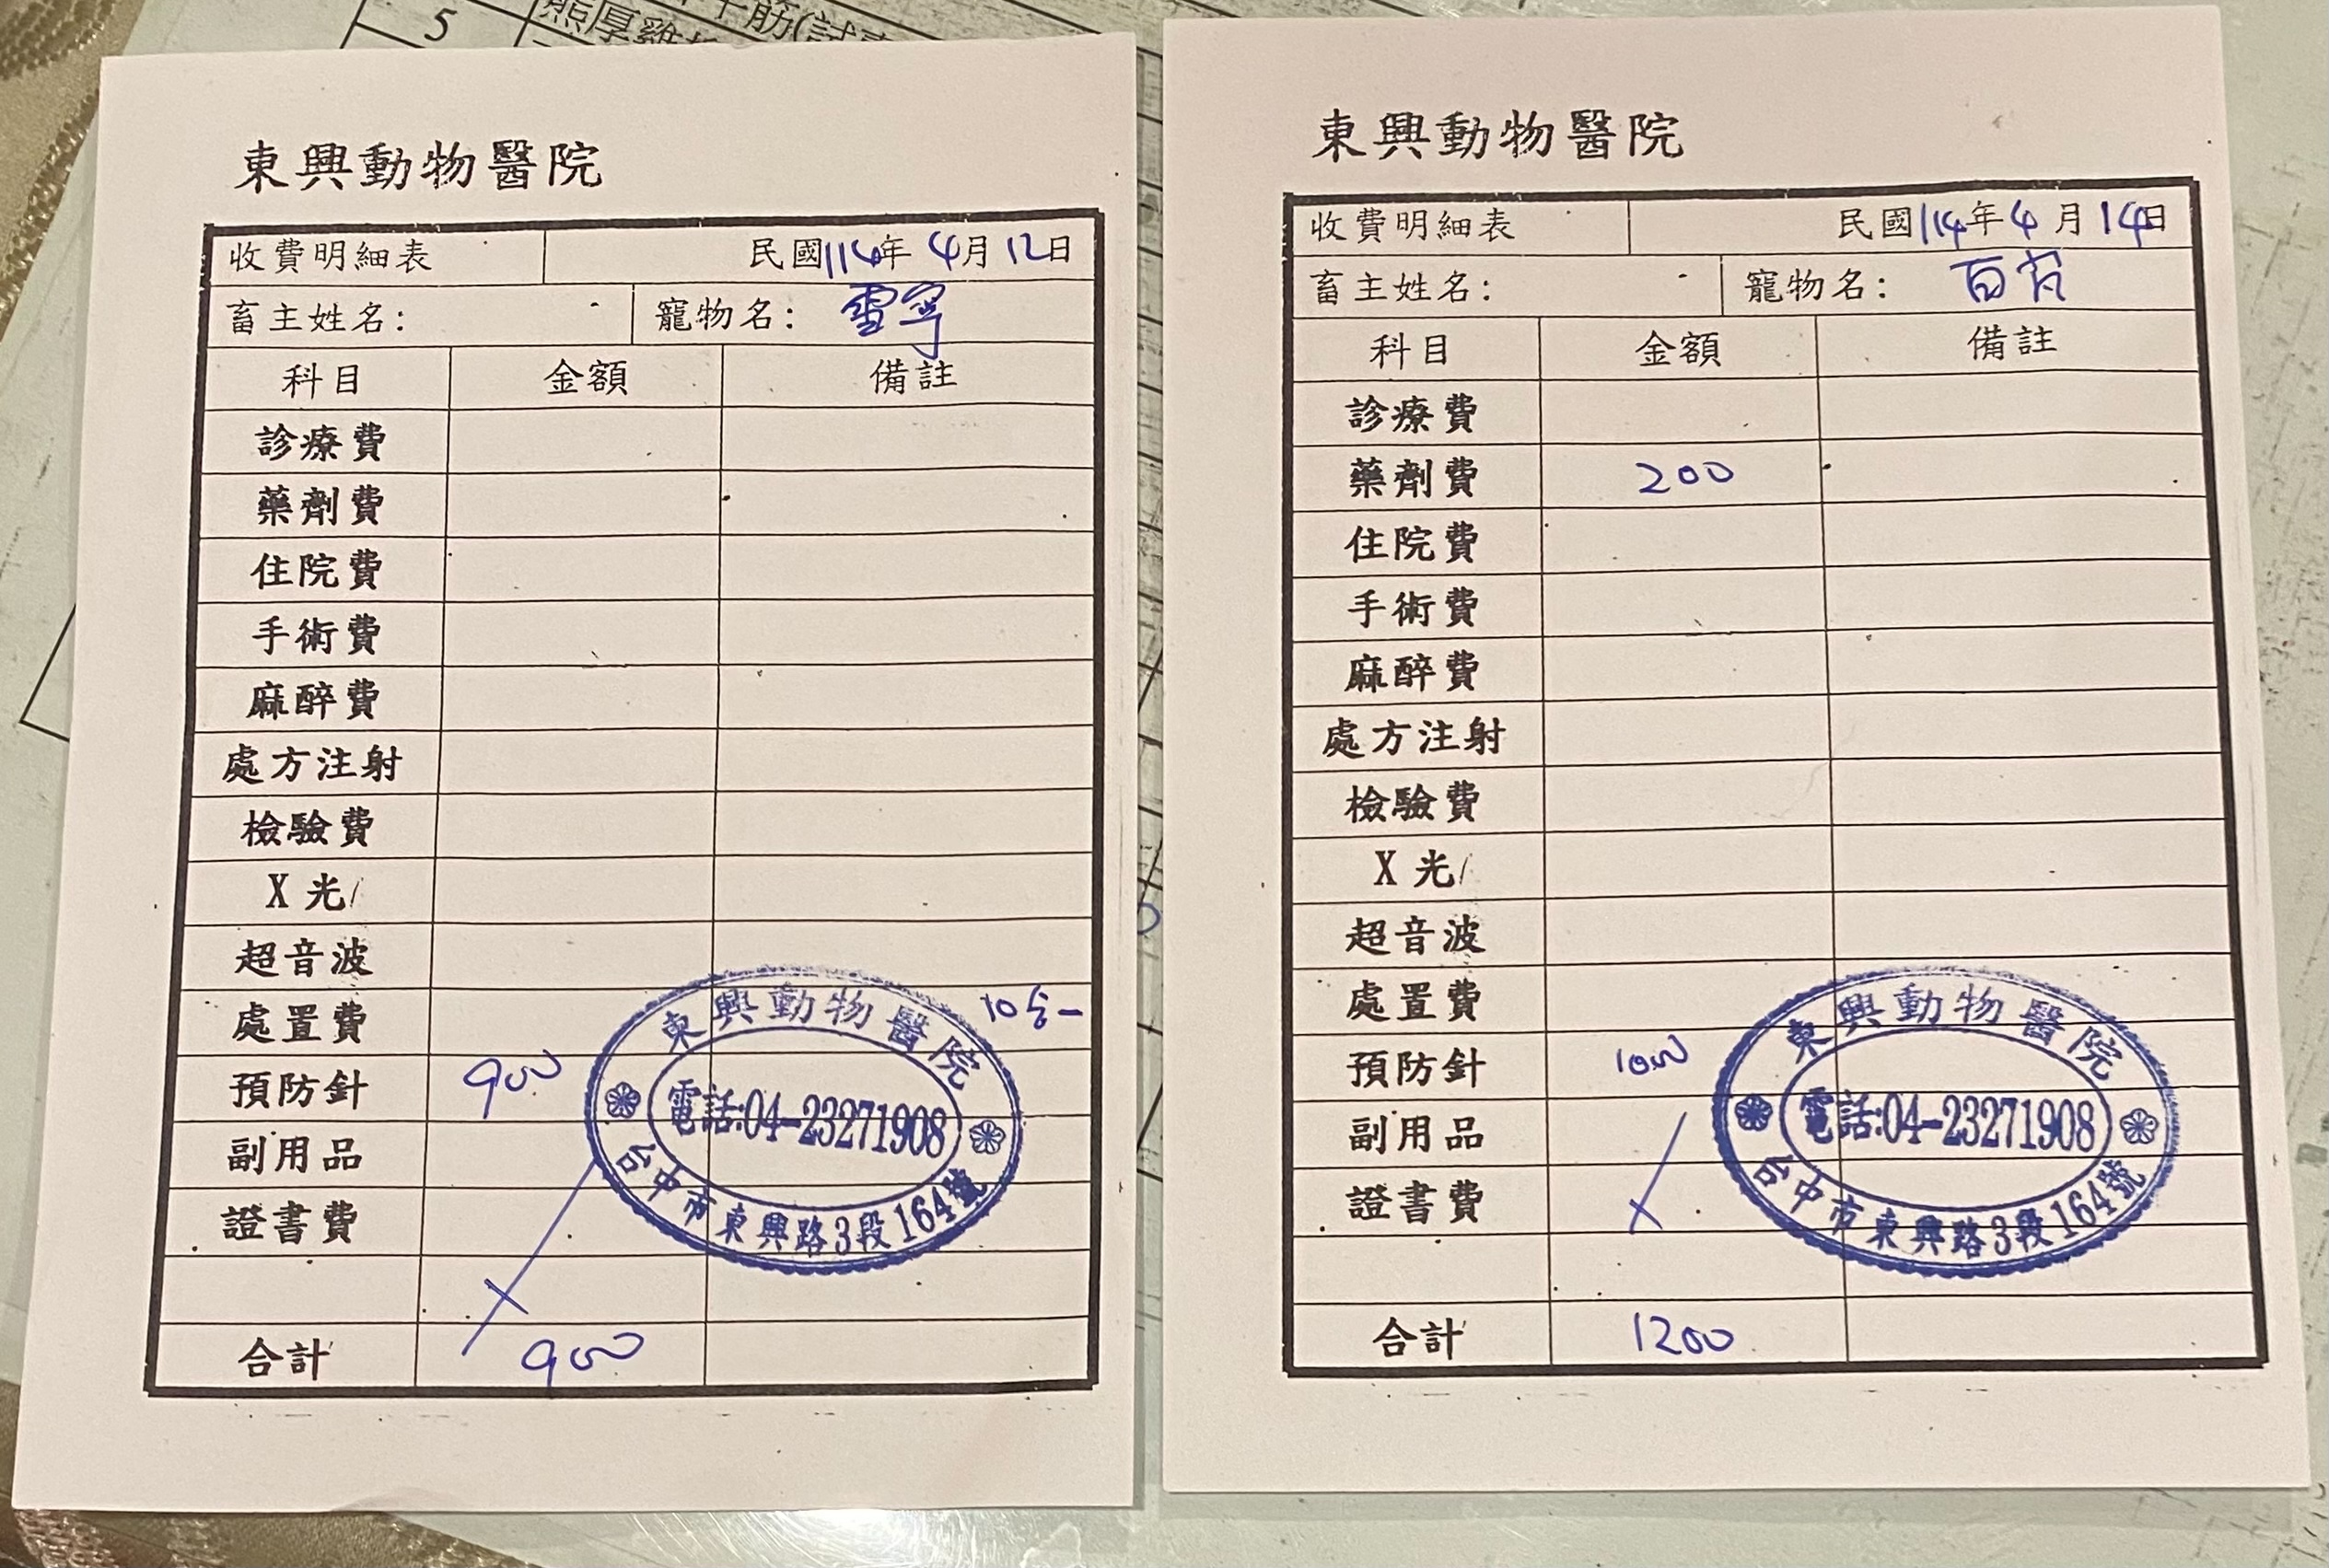 5
東興動物醫院
收費明細表 民國114年4月12日
畜主姓名: 寵物名: 雪寧
科目 金額 備註
診療費
藥劑費
住院費
手術費
麻醉費
處方注射
檢驗費
X光
超音波
處置費 10合一
預防針 900
副用品
證書費
合計 900
東興動物醫院
電話:04-23271908
台中市東興路3段164號
東興動物醫院
收費明細表 民國114年4月14日
畜主姓名: 寵物名:
科目 金額 備註
診療費
藥劑費 200
住院費
手術費
麻醉費
處方注射
檢驗費
X光
超音波
處置費
預防針 1000
副用品
證書費
合計 1200
東興動物醫院
電話:04-23271908
台中市東興路3段164號